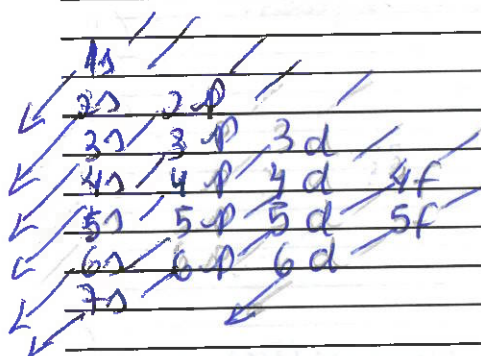 1s
2s 2p
3s 3p 3d
4s 4p 4d 4f
5s 5p 5d 5f
6s 6p 6d
7s